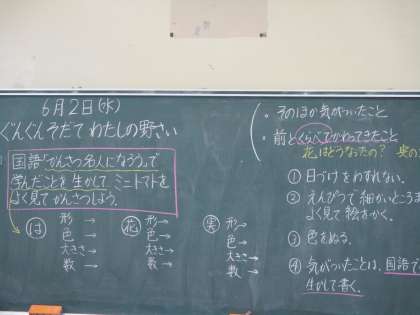 6月2日(水)
ぐんぐんそだて わたしの野さい
国語「かんさつ名人になろう」で
学んだことを 生かして ミニトマトを
よく見て かんさつしよう。
は
形→
色→
大きさ→
数→
花
形→
色→
大きさ→
数→
実
形→
色→
大きさ→
数→
・そのほか気がついたこと
・前とくらべてかわってきたこと
花はどうなったの?
① 日づけをわすれない。
② えんぴつで細かいところま
よく見て 絵をかく。
③ 色をぬる。
④ 気がついたことは、国語で
生かして書く。